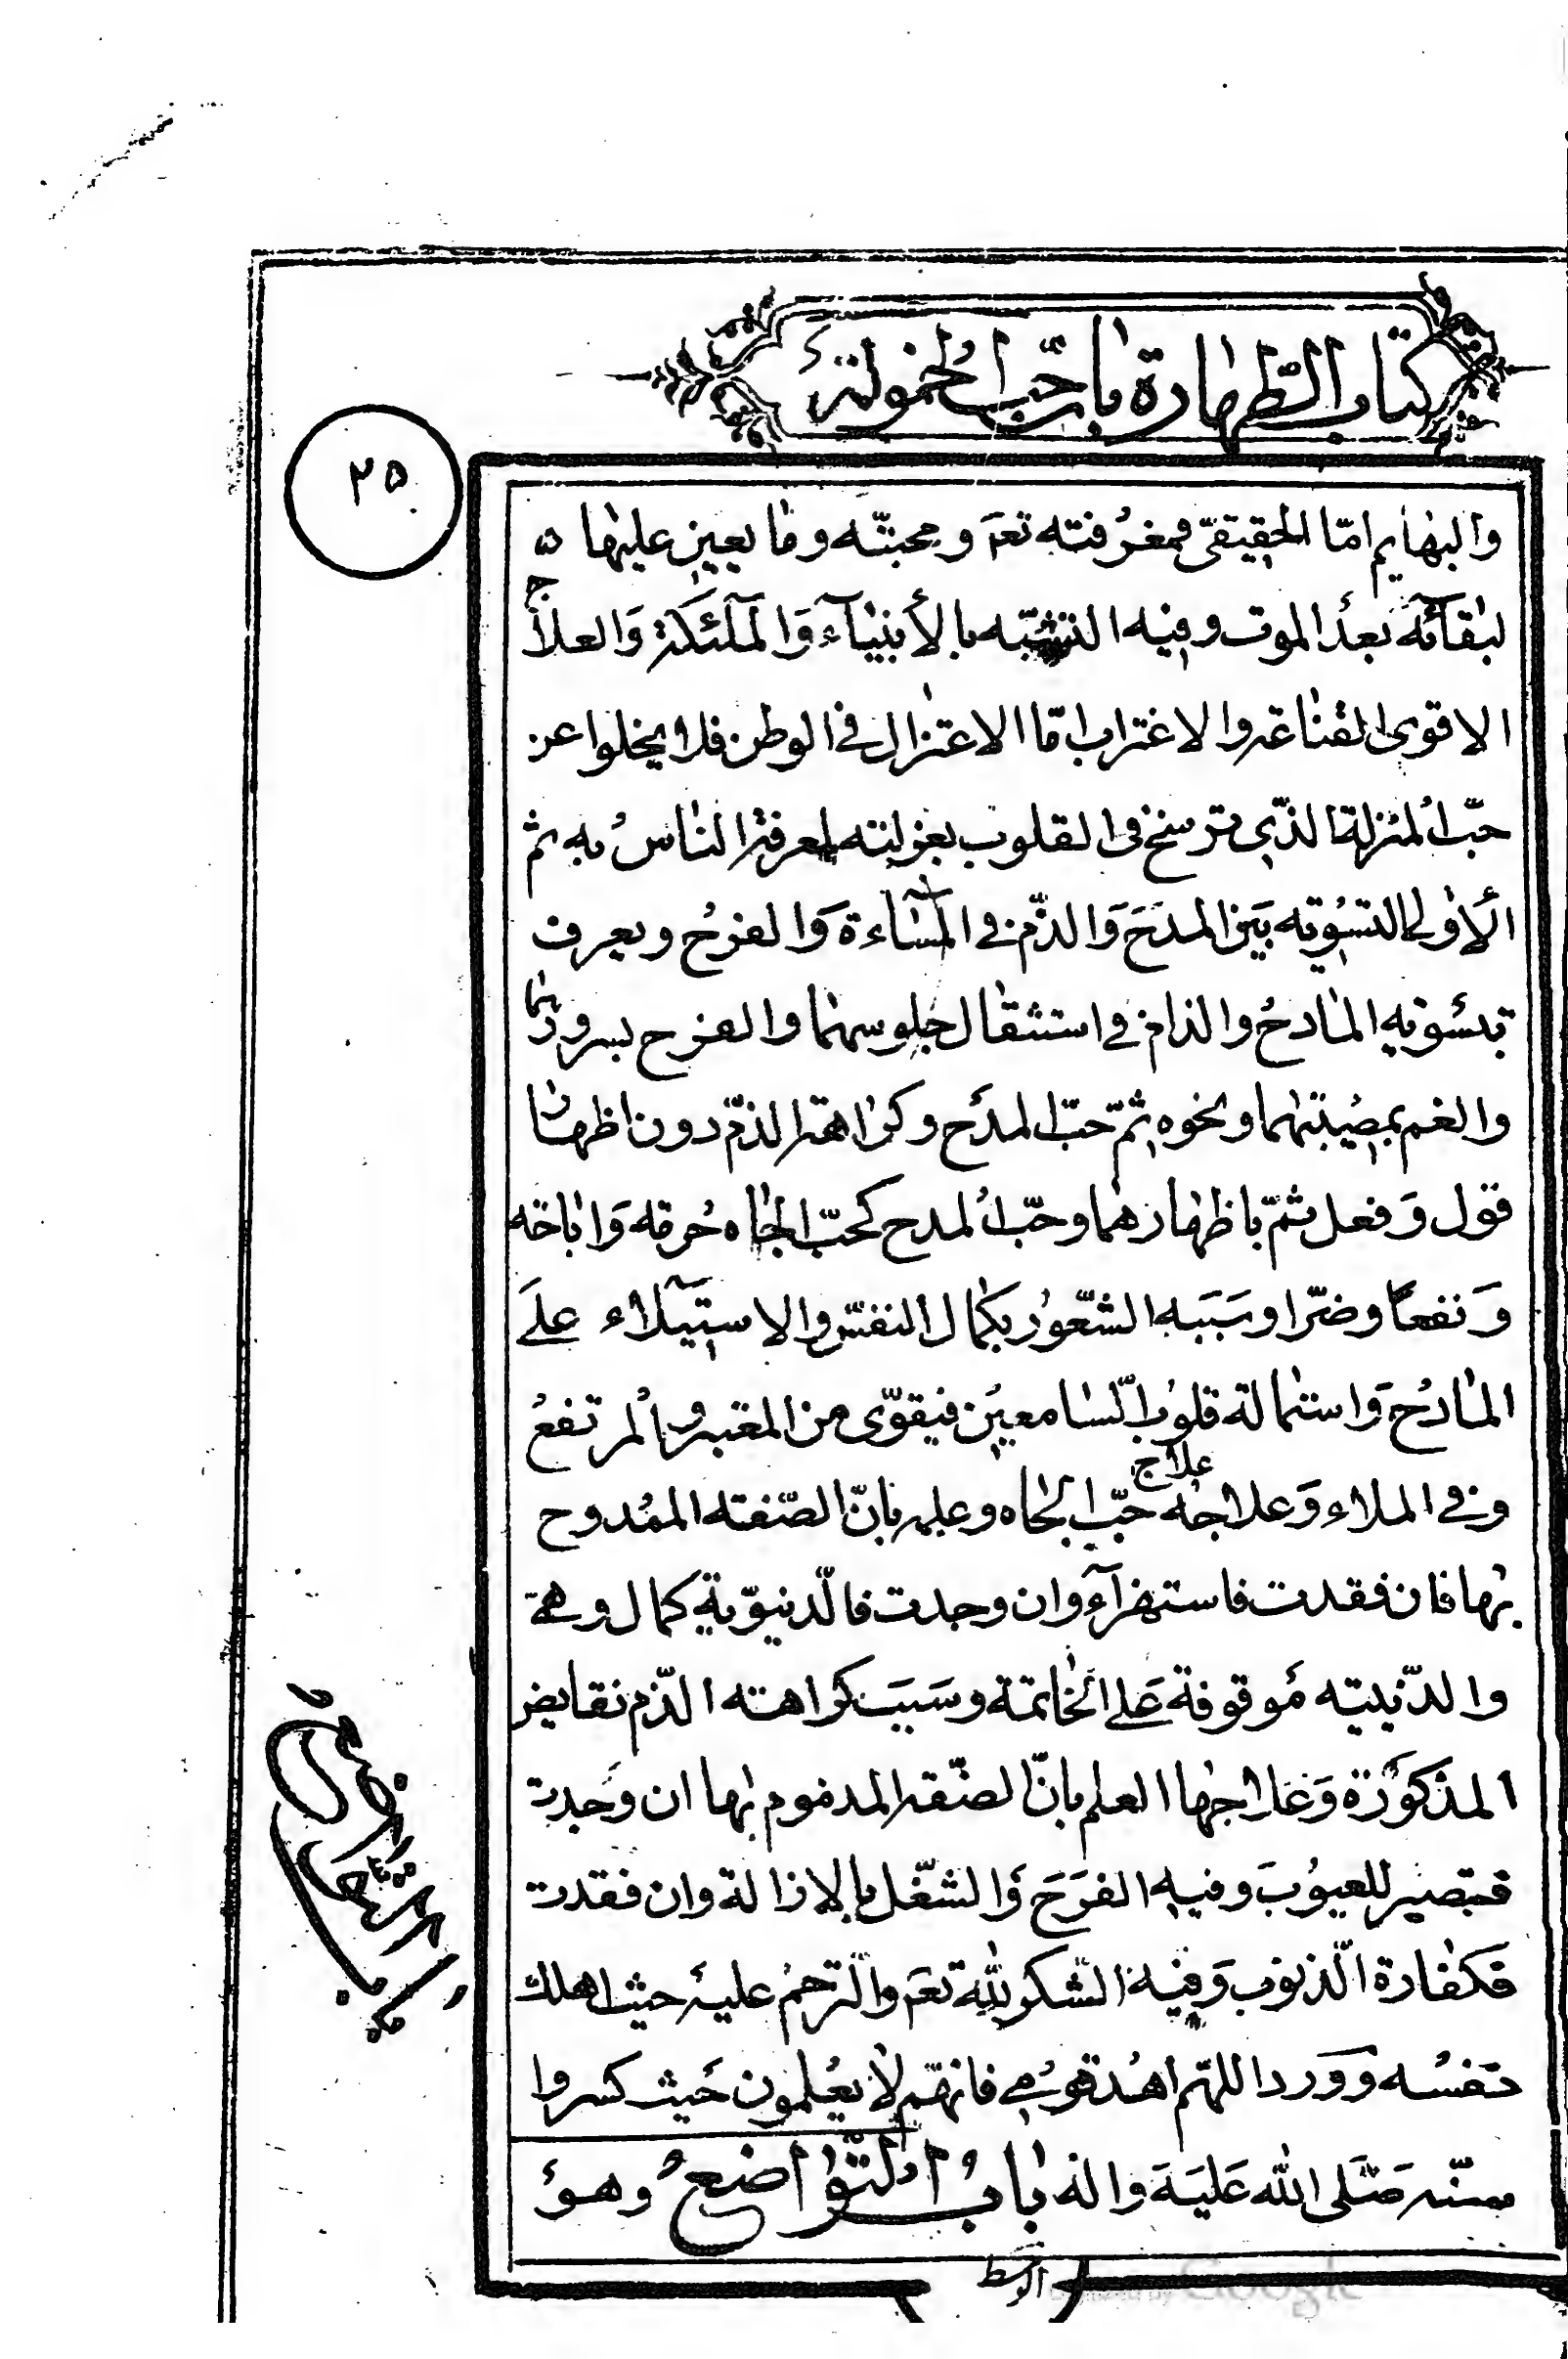 كتاب الطهارة باب حب الخمولة
٢٥
والبهايم امّا الحقيقىّ فمعرفته تعم ومحبتّه وما يعين عليها
لبقائه بعد الموت وفيه التشبّه بالأنبيآء والملئكة والعلاج
الاقوى القناعة والاغتراب امّا الاعتزال فى الوطن فلا يخلوا عن
حبّ المنزلة الذّى ترسخ فى القلوب بعزلته لمعرفة الناس به ثم
الاولى التسوية بين المدح والذّم فى المسّاءة والفرح ويعرف
بتسوية المادح والذام فى استثقال جلوسهما والفرح بسرورهما
والغم بمصيبتهما ونحوه ثمّ حبّ المدح وكراهة الذمّ دون اظهار
قول وفعل ثمّ باظهارهما وحبّ المدح كحبّ الجاه حرمة واباحة
ونفعا وضرّا وسببه الشّعور بكمال النفس والاستيلاء على
المادح واستمالة قلوب السّامعين فيقوّى من المعتبر والمرتفع
وفى الملاء وعلاجه علاج حبّ الجاه وعلمه بانّ الصّفة الممدوح
بها فان فقدت فاستهزآء وان وجدت فالّدنيوّية كمال وهمى
والدّينيته موقوفة على الخاتمة وسبب كراهته الذّم نقايض
المذكورة وعلاجها العلم بانّ الصّفة المذموم بها ان وجدت
فتبصير للعيوب وفيه الفرح والشّغل بالازالة وان فقدت
فكفارة الّذنوب وفيه الشّكر للّه تعم والّترحم عليه حيث اهلك
نفسه وورد اللهّم اهد قومى فانهّم لا يعلمون حيث كسروا
سنّه صلّى الله عليه واله باب التّواضع وهو
الوسط